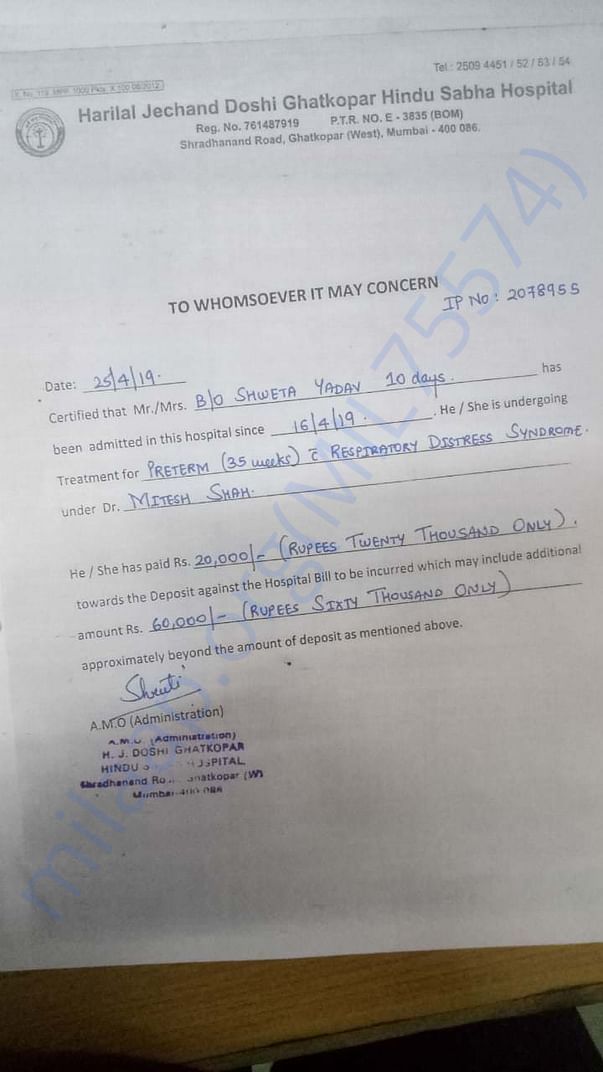 Tel.: 2509 4451 / 52 / 53 / 54
Harilal Jechand Doshi Ghatkopar Hindu Sabha Hospital
Reg. No. 761487919 P.T.R. NO. E - 3835 (BOM)
Shradhanand Road, Ghatkopar (West), Mumbai - 400 086.
TO WHOMSOEVER IT MAY CONCERN
IP No: 2078955
Date: 25/4/19.
Certified that Mr./Mrs. B/O SHWETA YADAV 10 days. has
been admitted in this hospital since 16/4/19. . He / She is undergoing
Treatment for PRETERM (35 weeks) c̄ RESPIRATORY DISTRESS SYNDROME.
under Dr. MITESH SHAH.
He / She has paid Rs. 20,000/- (RUPEES TWENTY THOUSAND ONLY).
towards the Deposit against the Hospital Bill to be incurred which may include additional
amount Rs. 60,000/- (RUPEES SIXTY THOUSAND ONLY)
approximately beyond the amount of deposit as mentioned above.
Shruti
A.M.O (Administration)
A.M.O. (Administration)
H. J. DOSHI GHATKOPAR
HINDU HOSPITAL
Shradhanand Ghatkopar (W)
Mumbai-400 086
milaap.org (MIL75574)